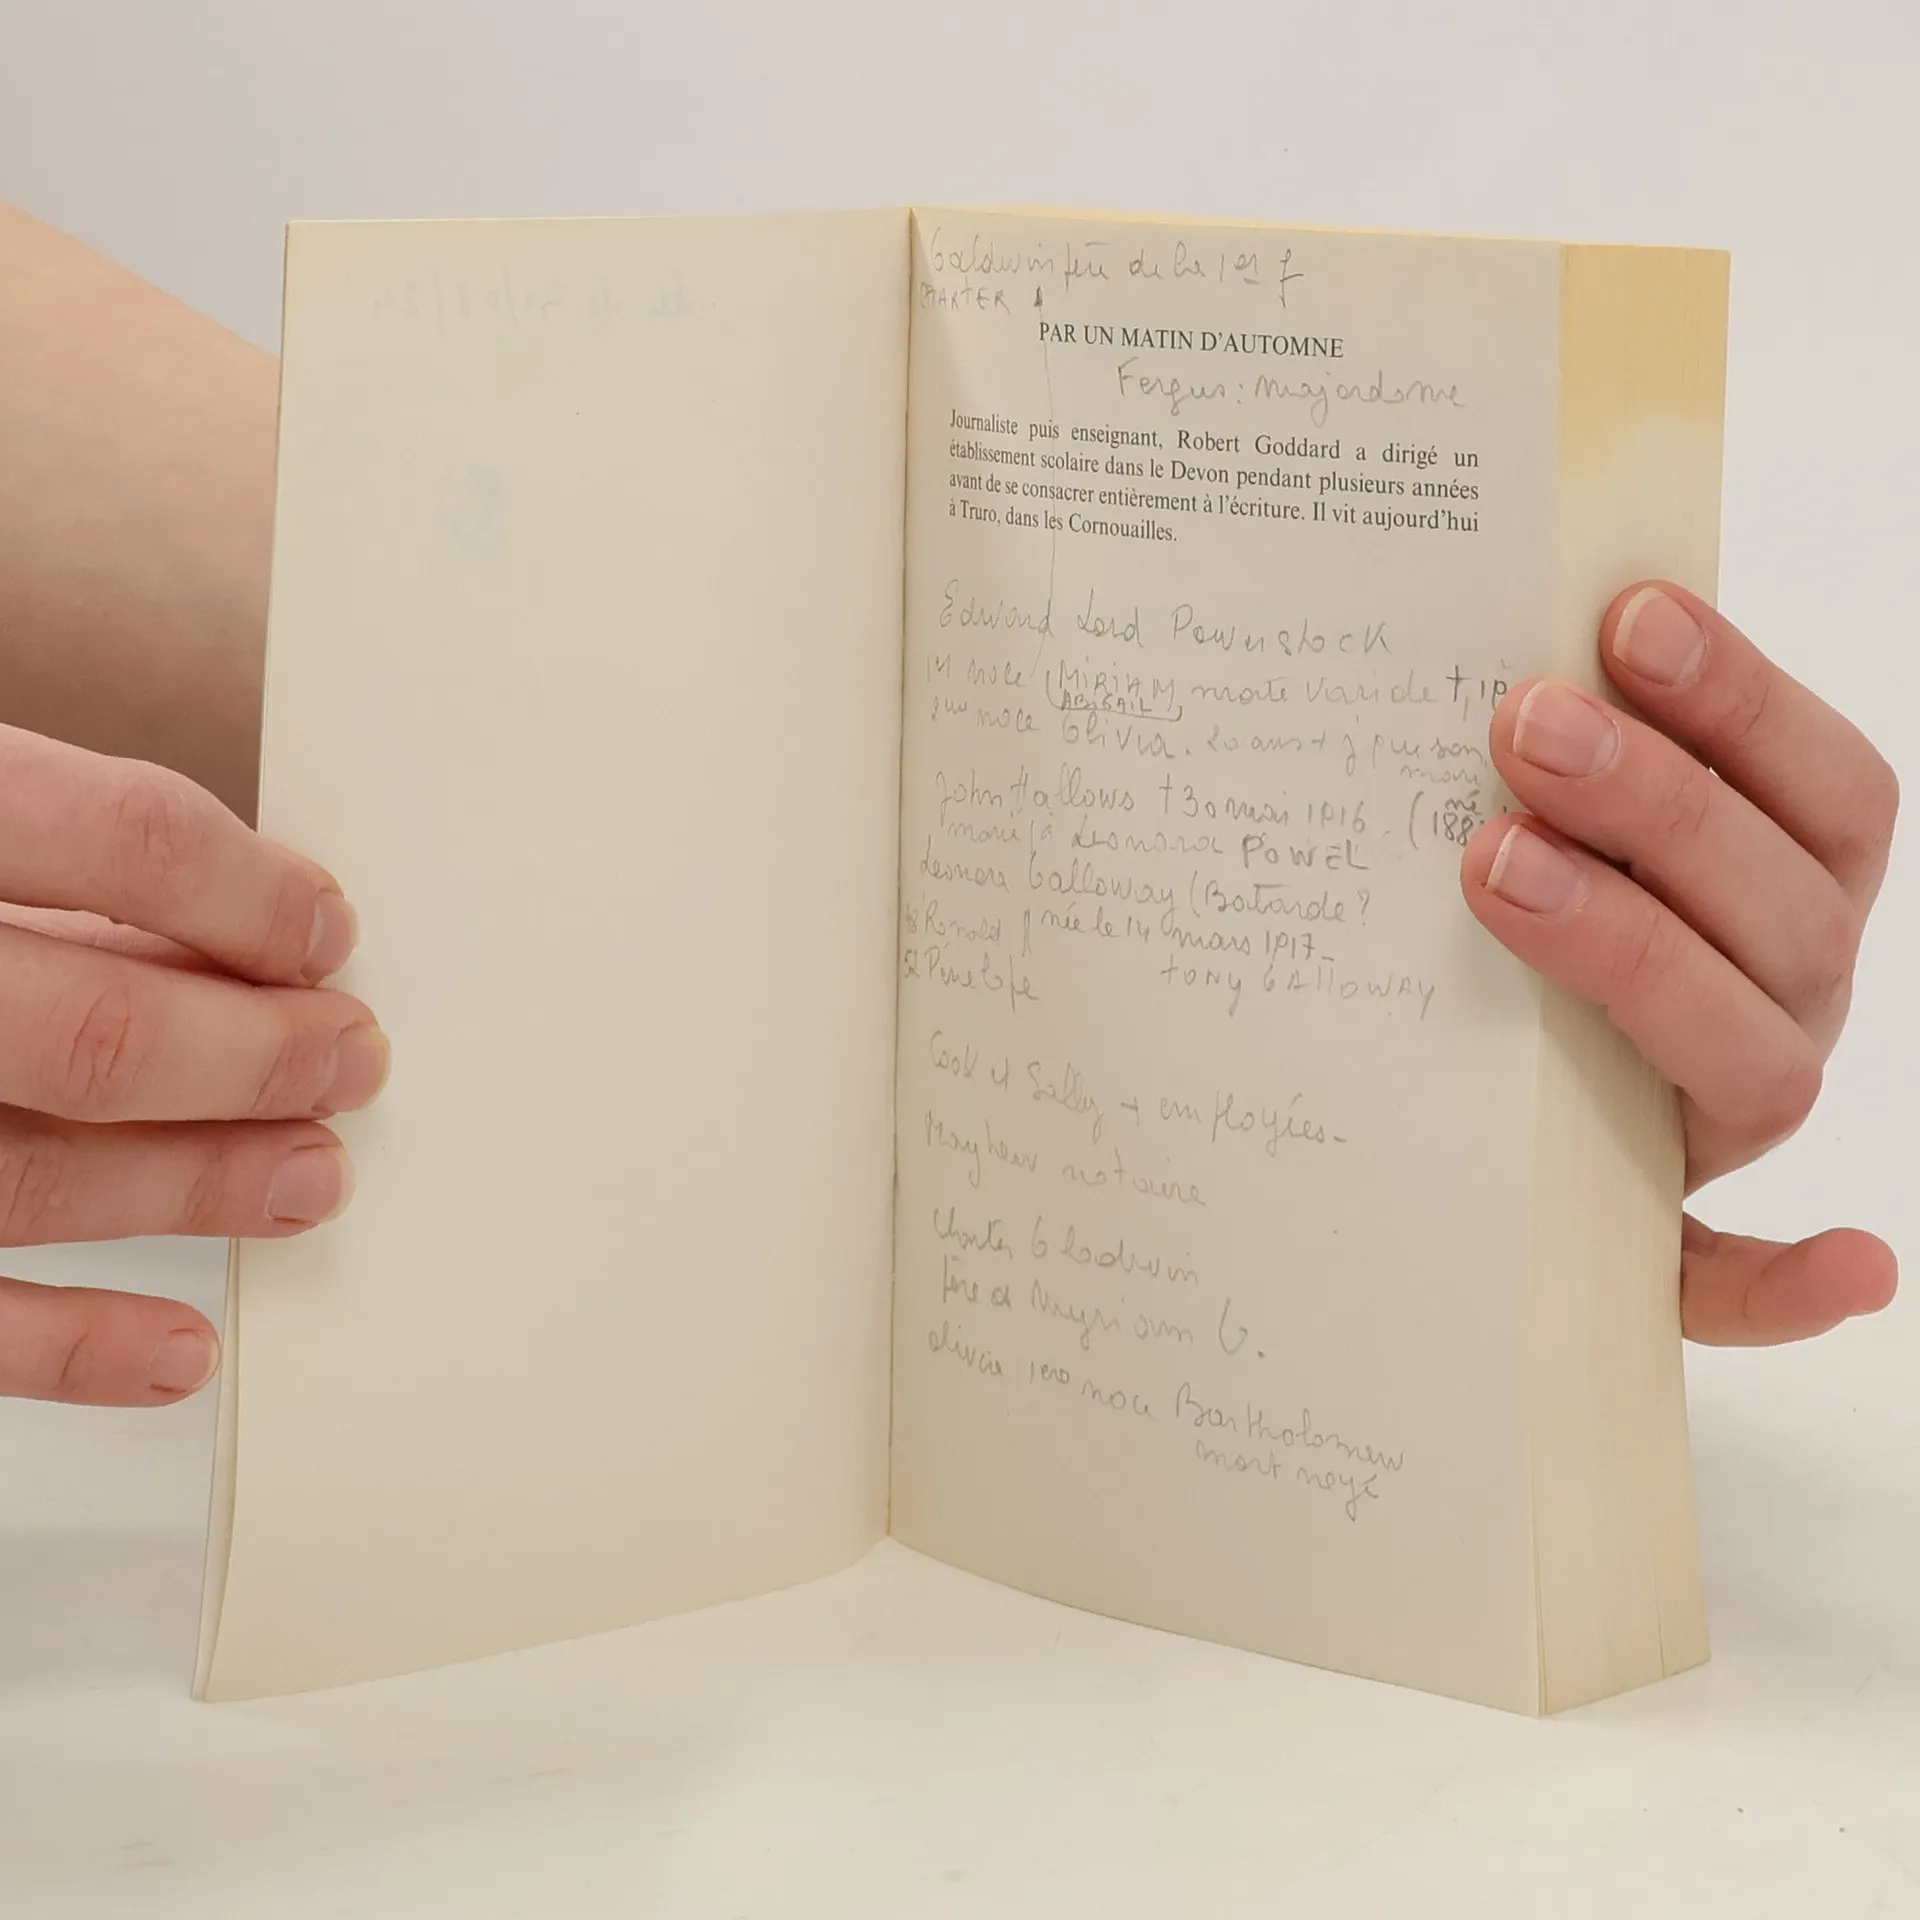 Galdwin père de la 1er f
CHARTER
PAR UN MATIN D'AUTOMNE
Fergus : majordome
Journaliste puis enseignant, Robert Goddard a dirigé un
établissement scolaire dans le Devon pendant plusieurs années
avant de se consacrer entièrement à l'écriture. Il vit aujourd'hui
à Truro, dans les Cornouailles.
Edward Lord Powerstock
noce (MIRIAM, morte
ABIGAIL
noce Olivia. 20 ans + j que son
mari
John Hallows † 30 mai 1916 (né
188
marié à Leonora POWEL
Leonora Galloway (Batarde ?
Ronald née le 14 mars 1917_
52 Pénélope TONY GALLOWAY
Cook et Sally → employées -
Mayhew notaire
Charter Gladwin
Père de Myriam G.
olivia noce Bartholomew
mort noyé